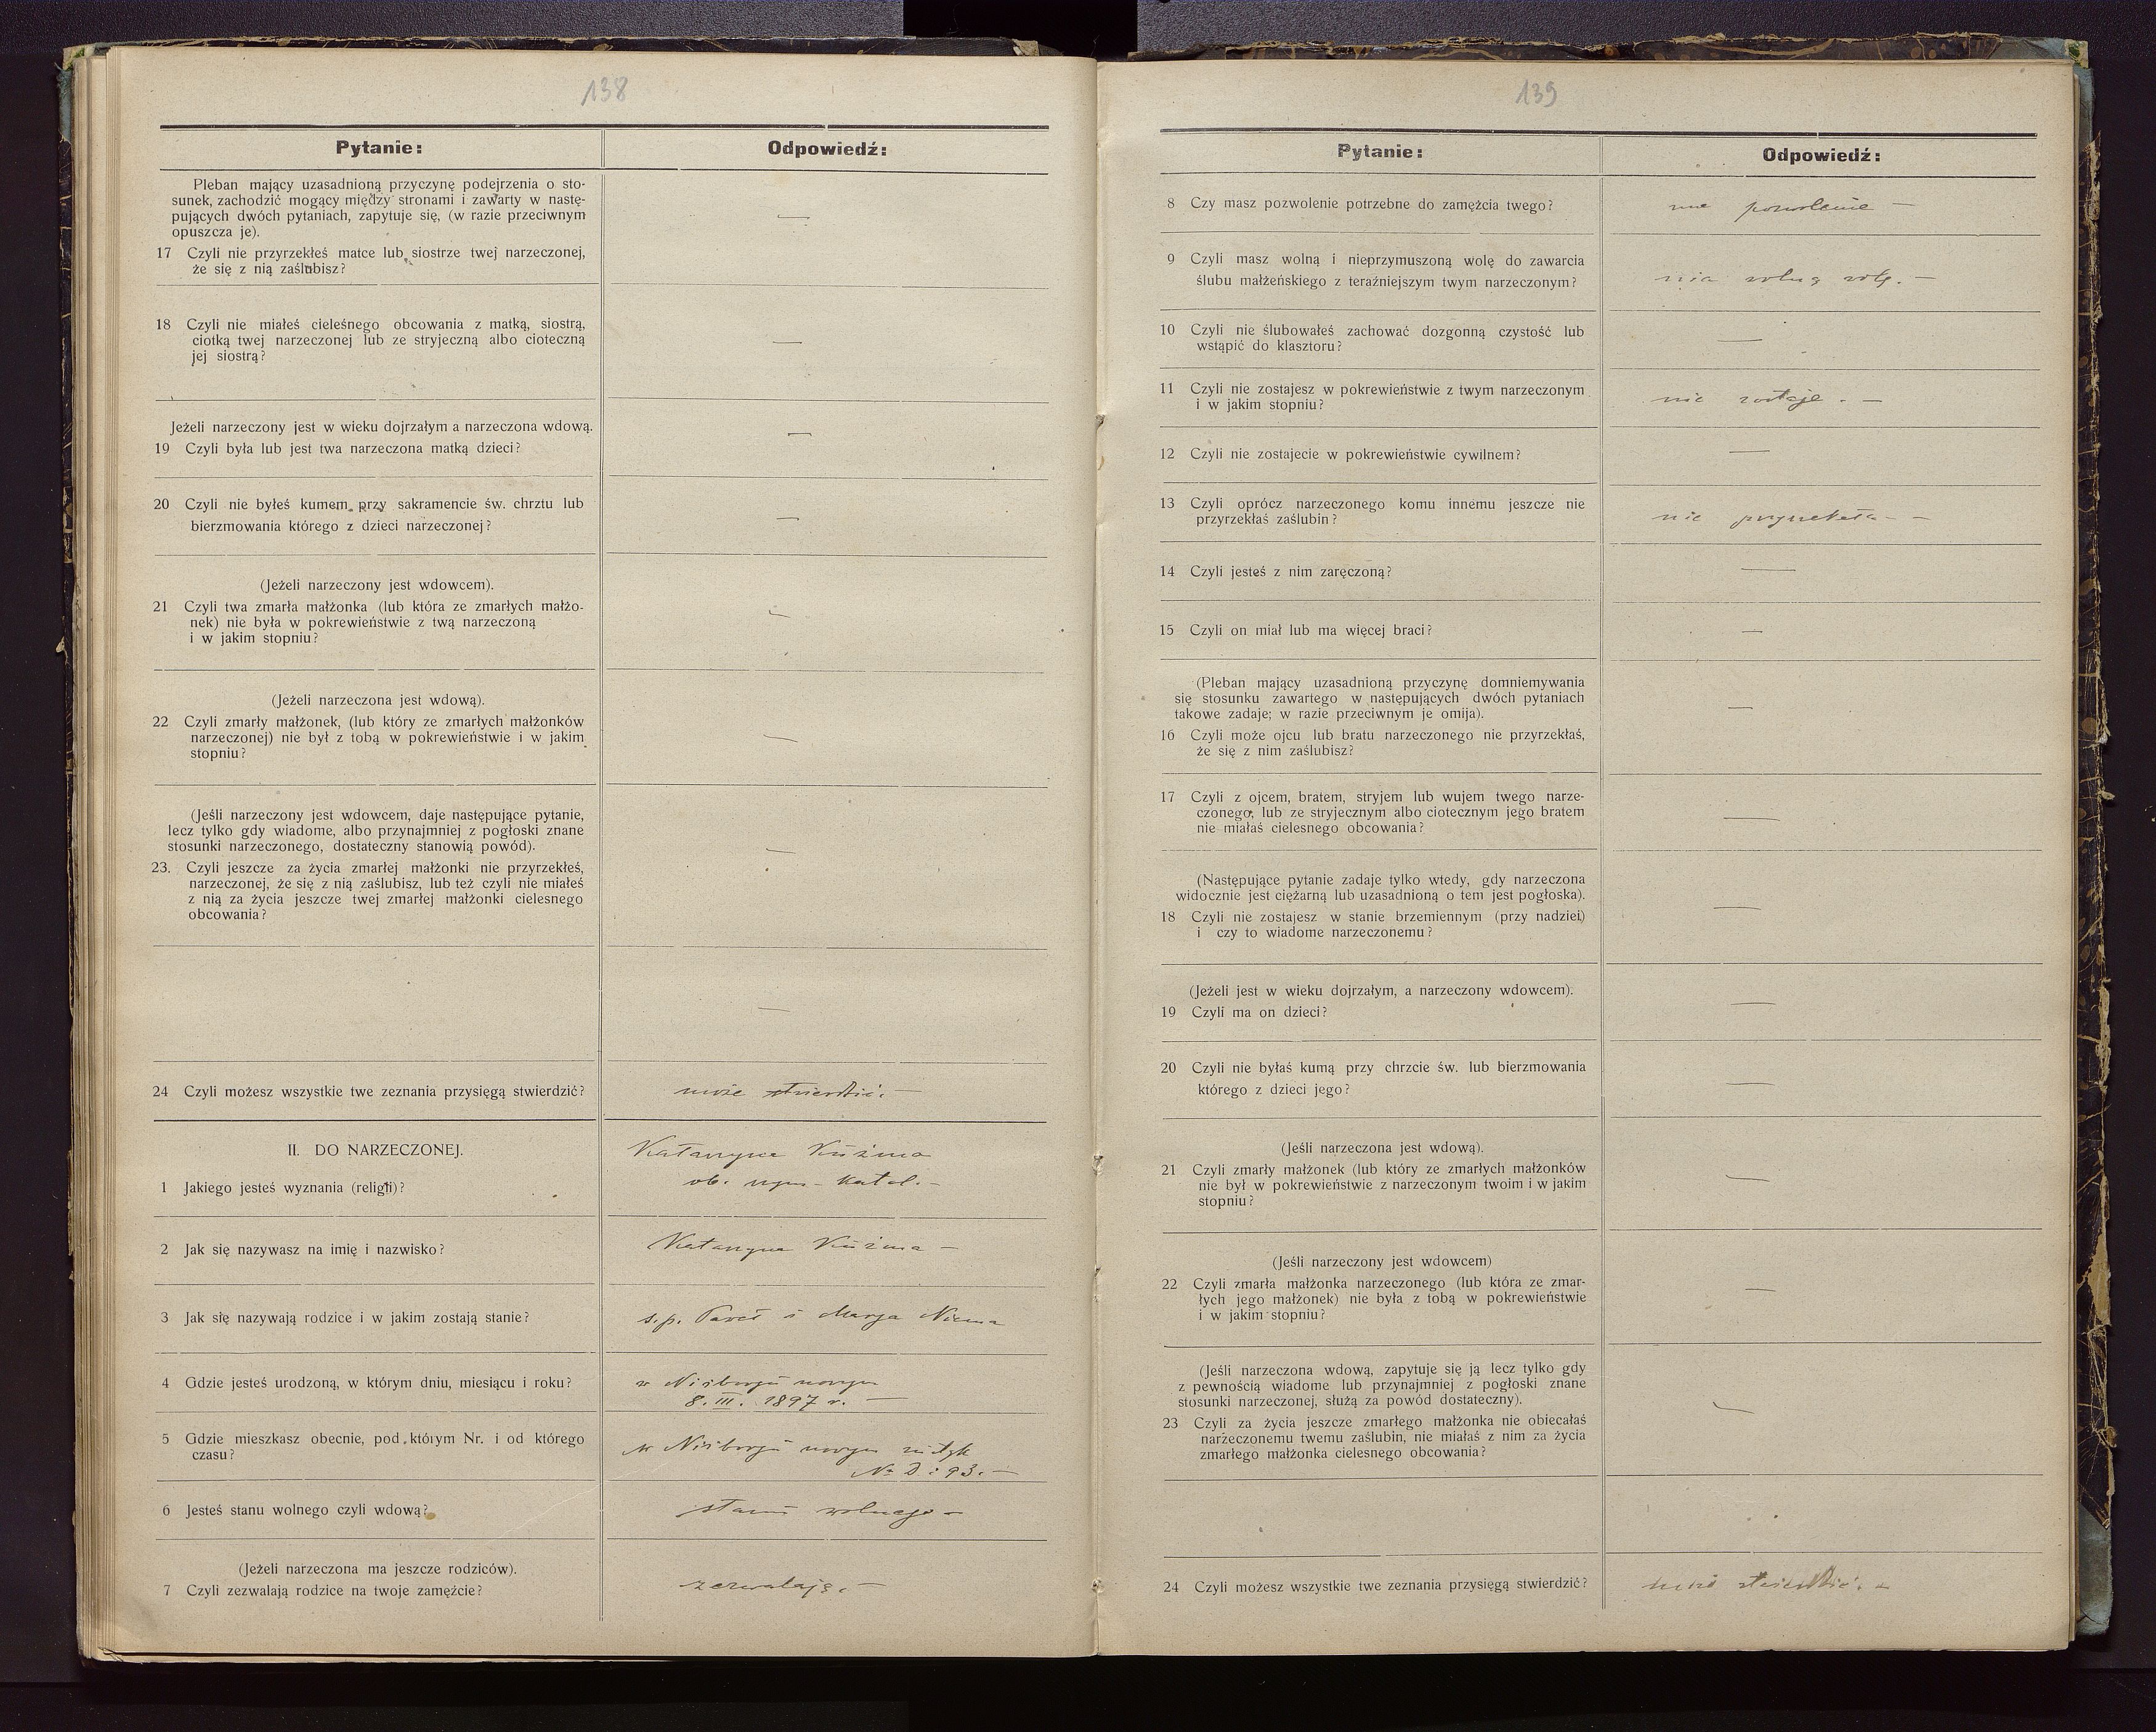 138
Pytanie:
Odpowiedź:
Pleban mający uzasadnioną przyczynę podejrzenia o sto-
sunek, zachodzić mogący między stronami i zawarty w nastę-
pujących dwóch pytaniach, zapytuje się, (w razie przeciwnym
opuszcza je).
—
17 Czyli nie przyrzekłeś matce lub siostrze twej narzeczonej,
że się z nią zaślubisz?
18 Czyli nie miałeś cieleśnego obcowania z matką, siostrą,
ciotką twej narzeczonej lub ze stryjeczną albo cioteczną
jej siostrą?
—
Jeżeli narzeczony jest w wieku dojrzałym a narzeczona wdową.
19 Czyli była lub jest twa narzeczona matką dzieci?
—
20 Czyli nie byłeś kumem przy sakramencie św. chrztu lub
bierzmowania którego z dzieci narzeczonej?
—
(Jeżeli narzeczony jest wdowcem).
21 Czyli twa zmarła małżonka (lub która ze zmarłych małżo-
nek) nie była w pokrewieństwie z twą narzeczoną
i w jakim stopniu?
—
(Jeżeli narzeczona jest wdową).
22 Czyli zmarły małżonek, (lub który ze zmarłych małżonków
narzeczonej) nie był z tobą w pokrewieństwie i w jakim
stopniu?
—
(Jeśli narzeczony jest wdowcem, daje następujące pytanie,
lecz tylko gdy wiadome, albo przynajmniej z pogłoski znane
stosunki narzeczonego, dostateczny stanowią powód).
—
23. Czyli jeszcze za życia zmarłej małżonki nie przyrzekłeś,
narzeczonej, że się z nią zaślubisz, lub też czyli nie miałeś
z nią za życia jeszcze twej zmarłej małżonki cielesnego
obcowania?
—
24 Czyli możesz wszystkie twe zeznania przysięgą stwierdzić?
może stwierdzić. —
II. DO NARZECZONEJ.
Katarzyna Kuźma
1 Jakiego jesteś wyznania (religji)?
ob. rzym-katol. —
2 Jak się nazywasz na imię i nazwisko?
Katarzyna Kuźma —
3 Jak się nazywają rodzice i w jakim zostają stanie?
s.p. Paweł i Marya
4 Gdzie jesteś urodzoną, w którym dniu, miesiącu i roku?
w Niżborgu nowym
8. III. 1897 r. —
5 Gdzie mieszkasz obecnie, pod którym Nr. i od którego
czasu?
w Niżborgu nowym
No D: 93. —
6 Jesteś stanu wolnego czyli wdową?
stanu wolnego —
(Jeżeli narzeczona ma jeszcze rodziców).
7 Czyli zezwalają rodzice na twoje zamęźcie?
zezwalają. —
139
Pytanie:
Odpowiedź:
8 Czy masz pozwolenie potrzebne do zamężcia twego?
ma pozwolenie —
9 Czyli masz wolną i nieprzymuszoną wolę do zawarcia
ślubu małżeńskiego z teraźniejszym twym narzeczonym?
ma wolną wolę. —
10 Czyli nie ślubowałeś zachować dozgonną czystość lub
wstąpić do klasztoru?
—
11 Czyli nie zostajesz w pokrewieństwie z twym narzeczonym
i w jakim stopniu?
nie zostaje. —
12 Czyli nie zostajecie w pokrewieństwie cywilnem?
—
13 Czyli oprócz narzeczonego komu innemu jeszcze nie
przyrzekłaś zaślubin?
nie przyrzekała —
14 Czyli jesteś z nim zaręczoną?
—
15 Czyli on miał lub ma więcej braci?
—
(Pleban mający uzasadnioną przyczynę domniemywania
się stosunku zawartego w następujących dwóch pytaniach
takowe zadaje; w razie przeciwnym je omija).
—
16 Czyli może ojcu lub bratu narzeczonego nie przyrzekłaś,
że się z nim zaślubisz?
17 Czyli z ojcem, bratem, stryjem lub wujem twego narze-
czonego, lub ze stryjecznym albo ciotecznym jego bratem
nie miałaś cielesnego obcowania?
—
(Następujące pytanie zadaje tylko wtedy, gdy narzeczona
widocznie jest ciężarną lub uzasadnioną o tem jest pogłoska).
18 Czyli nie zostajesz w stanie brzemiennym (przy nadziei)
i czy to wiadome narzeczonemu?
—
(Jeżeli jest w wieku dojrzałym, a narzeczony wdowcem).
19 Czyli ma on dzieci?
—
20 Czyli nie byłaś kumą przy chrzcie św. lub bierzmowania
którego z dzieci jego?
—
(Jeśli narzeczona jest wdową).
21 Czyli zmarły małżonek (lub który ze zmarłych małżonków
nie był w pokrewieństwie z narzeczonym twoim i w jakim
stopniu?
—
(Jeśli narzeczony jest wdowcem)
22 Czyli zmarła małżonka narzeczonego (lub która ze zmar-
łych jego małżonek) nie była z tobą w pokrewieństwie
i w jakim stopniu?
—
(Jeśli narzeczona wdową, zapytuje się ją lecz tylko gdy
z pewnością wiadome lub przynajmniej z pogłoski znane
stosunki narzeczonej, służą za powód dostateczny).
—
23 Czyli za życia jeszcze zmarłego małżonka nie obiecałaś
narzeczonemu twemu zaślubin, nie miałaś z nim za życia
zmarłego małżonka cielesnego obcowania?
24 Czyli możesz wszystkie twe zeznania przysięgą stwierdzić?
może stwierdzić. —